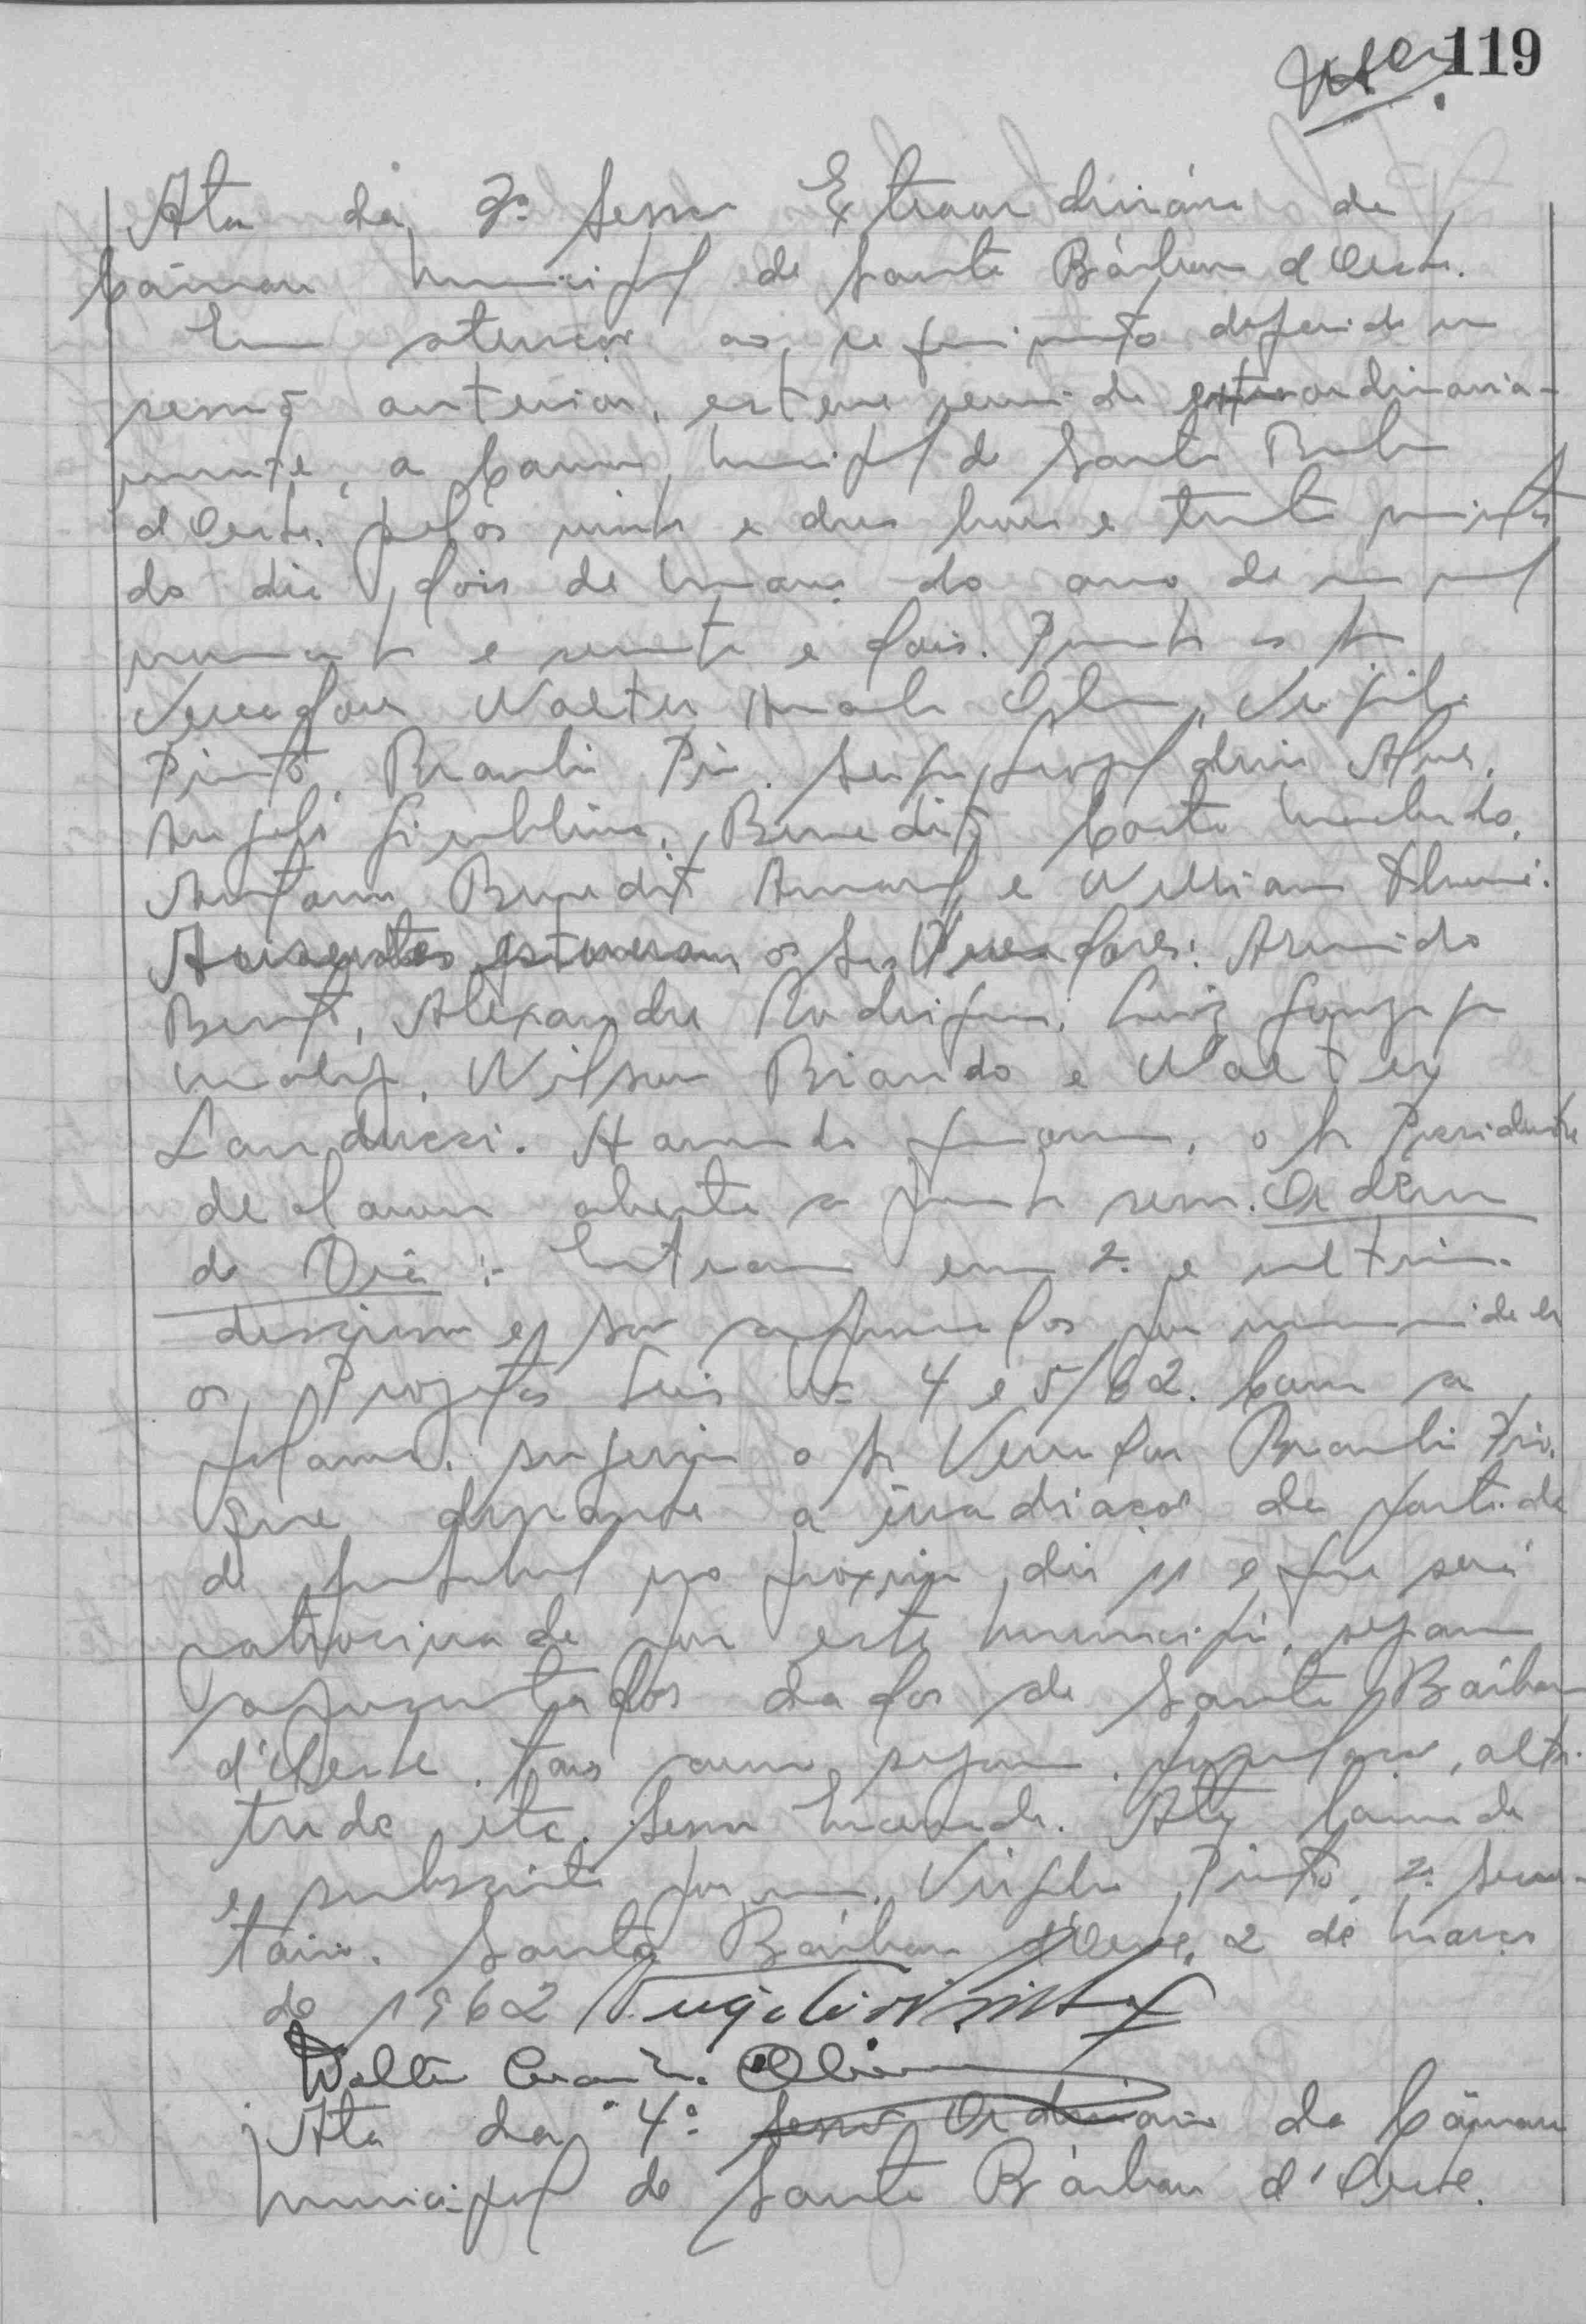 119
Ata da 2ª Sessão Extraordinária da
Câmara Municipal de Santa Bárbara d'Oeste.
Em atenção ao requerimento deferido em
sessão anterior, esteve reunida extraordinaria-
mente, a Câmara Municipal de Santa Barbara
d'Oeste, pelas vinte e duas horas e trinta minutos
do dia dois de Março do ano de um mil
novecentos e sessenta e dois. Presentes os Srs
Vereadores Walter Oliveira, Virgilio
Pinto, Braulio Pio, Alves,
Angelo Giubbina, Benedito Costa Machado,
Antonio Benedito Amaral e William
Ausentes estiveram os Srs Vereadores: Armindo
Alexandre Rodrigues, Luiz Gonzaga
Wilson Biando e Walter
Landucci. Havendo o Sr Presidente
declarou aberta a presente sessão. Ordem
do Dia :- Entram em 2ª e ultima
discussão e são aprovados por unanimidade
os Projetos Leis Nº 4 e 5/62. Com a
palavra, sugeriu o Sr Vereador Braulio Pio,
que durante a irradiação da partida
de futebol no próximo dia 11 e que será
patrocinada por este município, sejam
apresentados dados de Santa Bárbara
d'Oeste, tais como sejam, população, alti-
tude etc. Sessão Encerrada. Ata lavrada
e subscrita por mim, Virgilio Pinto, 2º Secre-
tário. Santa Bárbara d'Oeste, 2 de Março
de 1962 Virgilio Pinto
Walter Oliveira
Ata da 4ª Sessão Ordinária da Câmara
Municipal de Santa Bárbara d'Oeste.